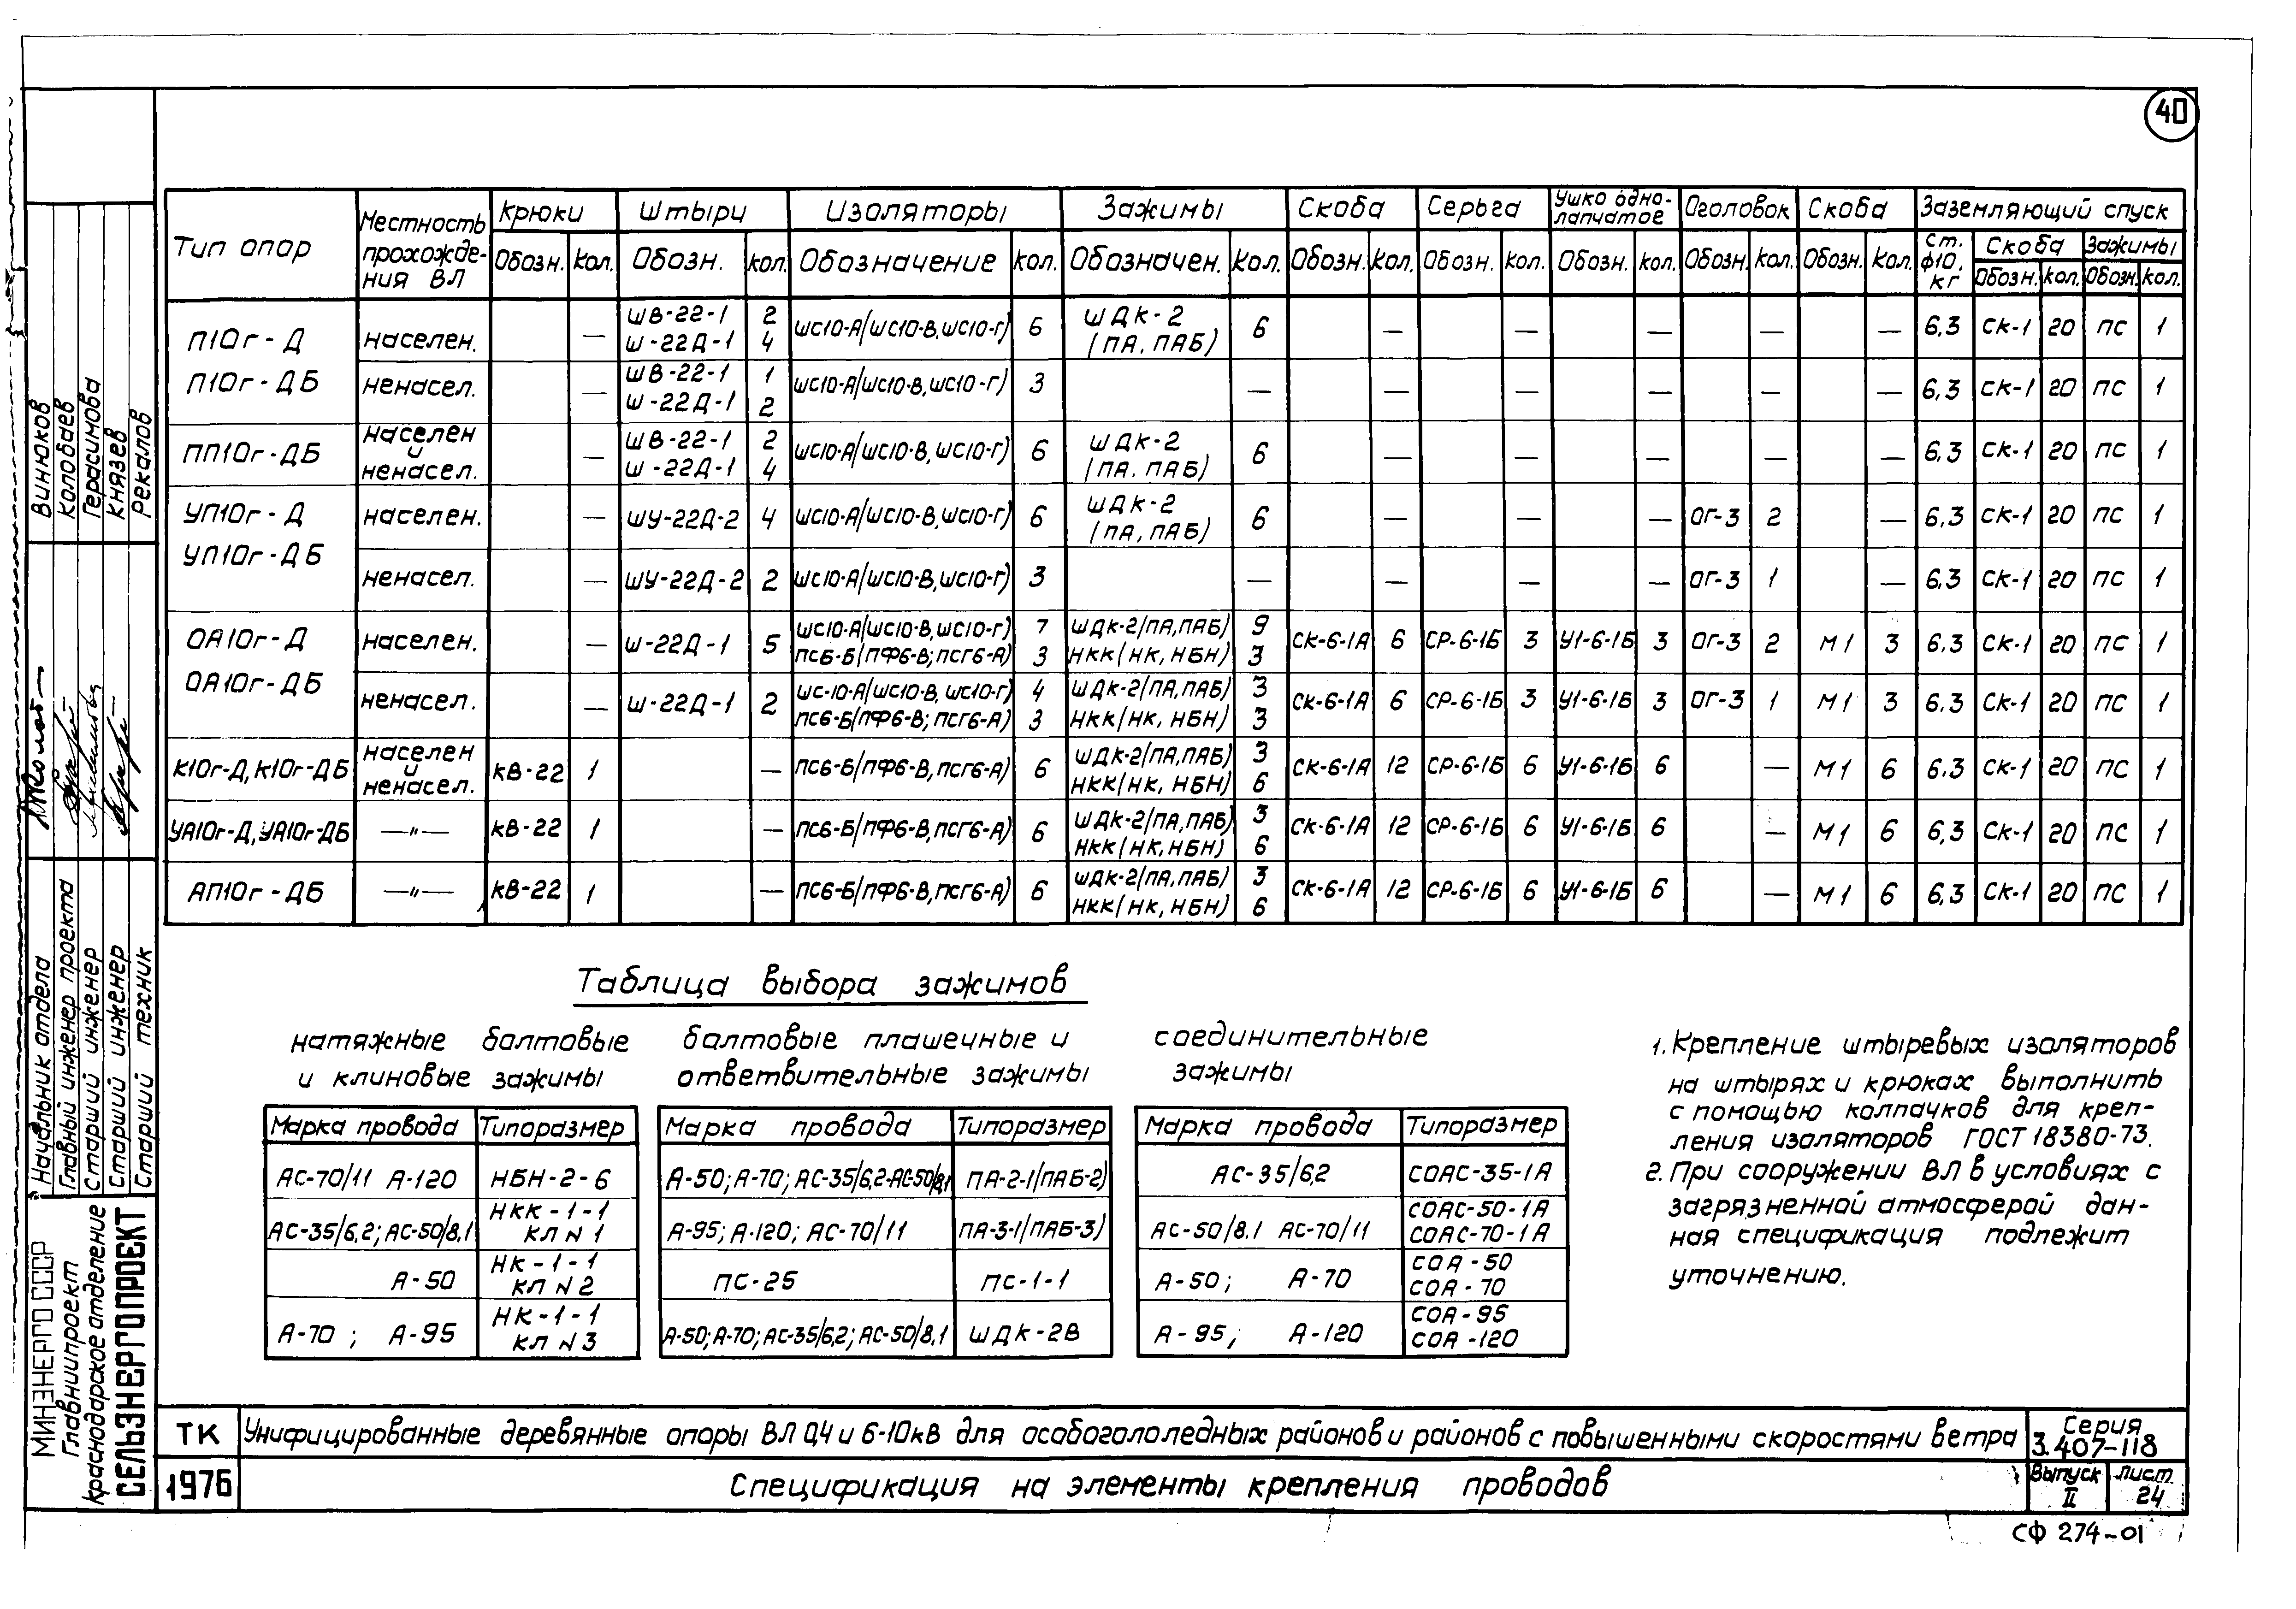 40
Тип опор | Местность прохожде-ния ВЛ | Крюки | Штыри | Изоляторы | Зажимы | Скоба | Серьга | Ушко одно-лапчатое | Оголовок | Скоба | Заземляющий спуск
Обозн. | Кол. | Обозн. | кол. | Обозначение | кол. | Обозначен. | Кол. | Обозн. | Кол. | Обозн. | Кол. | Обозн. | Кол. | Обозн. | Кол. | Обозн. | Кол. | ст. ф10, кг | Скоба | Зажимы
Обозн. | кол. | Обозн. | кол.
П10г-Д | населен. | — | ШВ-22-1 2 Ш-22Д-1 4 | ШС10-А(ШС10-В, ШС10-Г) | 6 | ШДК-2 (ПА, ПАБ) | 6 | — | — | — | — | — | 6,3 | СК-1 | 20 | ПС | 1
П10г-ДБ | ненасел. | — | ШВ-22-1 1 Ш-22Д-1 2 | ШС10-А(ШС10-В, ШС10-Г) | 3 | — | — | — | — | — | — | 6,3 | СК-1 | 20 | ПС | 1
ПП10г-ДБ | населен и ненасел. | — | ШВ-22-1 2 Ш-22Д-1 4 | ШС10-А(ШС10-В, ШС10-Г) | 6 | ШДК-2 (ПА. ПАБ) | 6 | — | — | — | — | — | 6,3 | СК-1 | 20 | ПС | 1
УП10г-Д | населен. | — | ШУ-22Д-2 | 4 | ШС10-А(ШС10-В, ШС10-Г) | 6 | ШДК-2 (ПА, ПАБ) | 6 | — | — | — | ОГ-3 | 2 | — | 6,3 | СК-1 | 20 | ПС | 1
УП10г-ДБ | ненасел. | — | ШУ-22Д-2 | 2 | ШС10-А(ШС10-В, ШС10-Г) | 3 | — | — | — | — | ОГ-3 | 1 | — | 6,3 | СК-1 | 20 | ПС | 1
ОА10г-Д | населен. | — | Ш-22Д-1 | 5 | ШС10-А(ШС10-В, ШС10-Г) 7 ПС6-Б(ПФ6-В; ПСГ6-А) 3 | ШДК-2(ПА, ПАБ) 9 НКК(НК, НБН) 3 | СК-6-1А | 6 | СР-6-1Б | 3 | У1-6-1Б | 3 | ОГ-3 | 2 | М1 | 3 | 6,3 | СК-1 | 20 | ПС | 1
ОА10г-ДБ | ненасел. | — | Ш-22Д-1 | 2 | ШС-10-А(ШС10-В, ШС10-Г) 4 ПС6-Б(ПФ6-В; ПСГ6-А) 3 | ШДК-2(ПА, ПАБ) 3 НКК(НК, НБН) 3 | СК-6-1А | 6 | СР-6-1Б | 3 | У1-6-1Б | 3 | ОГ-3 | 1 | М1 | 3 | 6,3 | СК-1 | 20 | ПС | 1
К10г-Д, К10г-ДБ | населен и ненасел. | КВ-22 | 1 | — | ПС6-Б(ПФ6-В, ПСГ6-А) | 6 | ШДК-2(ПА, ПАБ) 3 НКК(НК, НБН) 6 | СК-6-1А | 12 | СР-6-1Б | 6 | У1-6-1Б | 6 | — | М1 | 6 | 6,3 | СК-1 | 20 | ПС | 1
УА10г-Д, УА10г-ДБ | —"— | КВ-22 | 1 | — | ПС6-Б(ПФ6-В, ПСГ6-А) | 6 | ШДК-2(ПА, ПАБ) 3 НКК(НК, НБН) 6 | СК-6-1А | 12 | СР-6-1Б | 6 | У1-6-1Б | 6 | — | М1 | 6 | 6,3 | СК-1 | 20 | ПС | 1
АП10г-ДБ | —"— | КВ-22 | 1 | — | ПС6-Б(ПФ6-В, ПСГ6-А) | 6 | ШДК-2(ПА, ПАБ) 3 НКК(НК, НБН) 6 | СК-6-1А | 12 | СР-6-1Б | 6 | У1-6-1Б | 6 | — | М1 | 6 | 6,3 | СК-1 | 20 | ПС | 1
Таблица выбора зажимов
натяжные балтовые
и клиновые зажимы
Марка провода | Типоразмер
АС-70/11 А-120 | НБН-2-6
АС-35/6,2; АС-50/8,1 | НКК-1-1 КЛ N 1
А-50 | НК-1-1 КЛ N 2
А-70; А-95 | НК-1-1 КЛ N 3
балтовые плашечные и
ответвительные зажимы
Марка провода | Типоразмер
А-50; А-70; АС-35/6,2-АС-50/8,1 | ПА-2-1(ПАБ-2)
А-95; А-120; АС-70/11 | ПА-3-1(ПАБ-3)
ПС-25 | ПС-1-1
А-50; А-70; АС-35/6,2; АС-50/8,1 | ШДК-2В
соединительные
зажимы
Марка провода | Типоразмер
АС-35/6,2 | СОАС-35-1А
АС-50/8,1 АС-70/11 | СОАС-50-1А СОАС-70-1А
А-50; А-70 | СОА-50 СОА-70
А-95; А-120 | СОА-95 СОА-120
1. Крепление штыревых изоляторов
на штырях и крюках выполнить
с помощью колпачков для креп-
ления изоляторов ГОСТ 18380-73.
2. При сооружении ВЛ в условиях с
загрязненной атмосферой дан-
ная спецификация подлежит
уточнению.
ТК
1976
Унифицированные деревянные опоры ВЛ 0,4 и 6-10кВ для особогололедных районов и районов с повышенными скоростями ветра
Спецификация на элементы крепления проводов
Серия
3.407-118
Выпуск
II
лист.
24
СФ 274-01
МИНЭНЕРГО СССР
Главниипроект
Краснодарское отделение
СЕЛЬЭНЕРГОПРОЕКТ
Начальник отдела Винюков
Главный инженер проекта Колобаев
Старший инженер Герасимова
Старший инженер Князев
Старший техник Рекалов